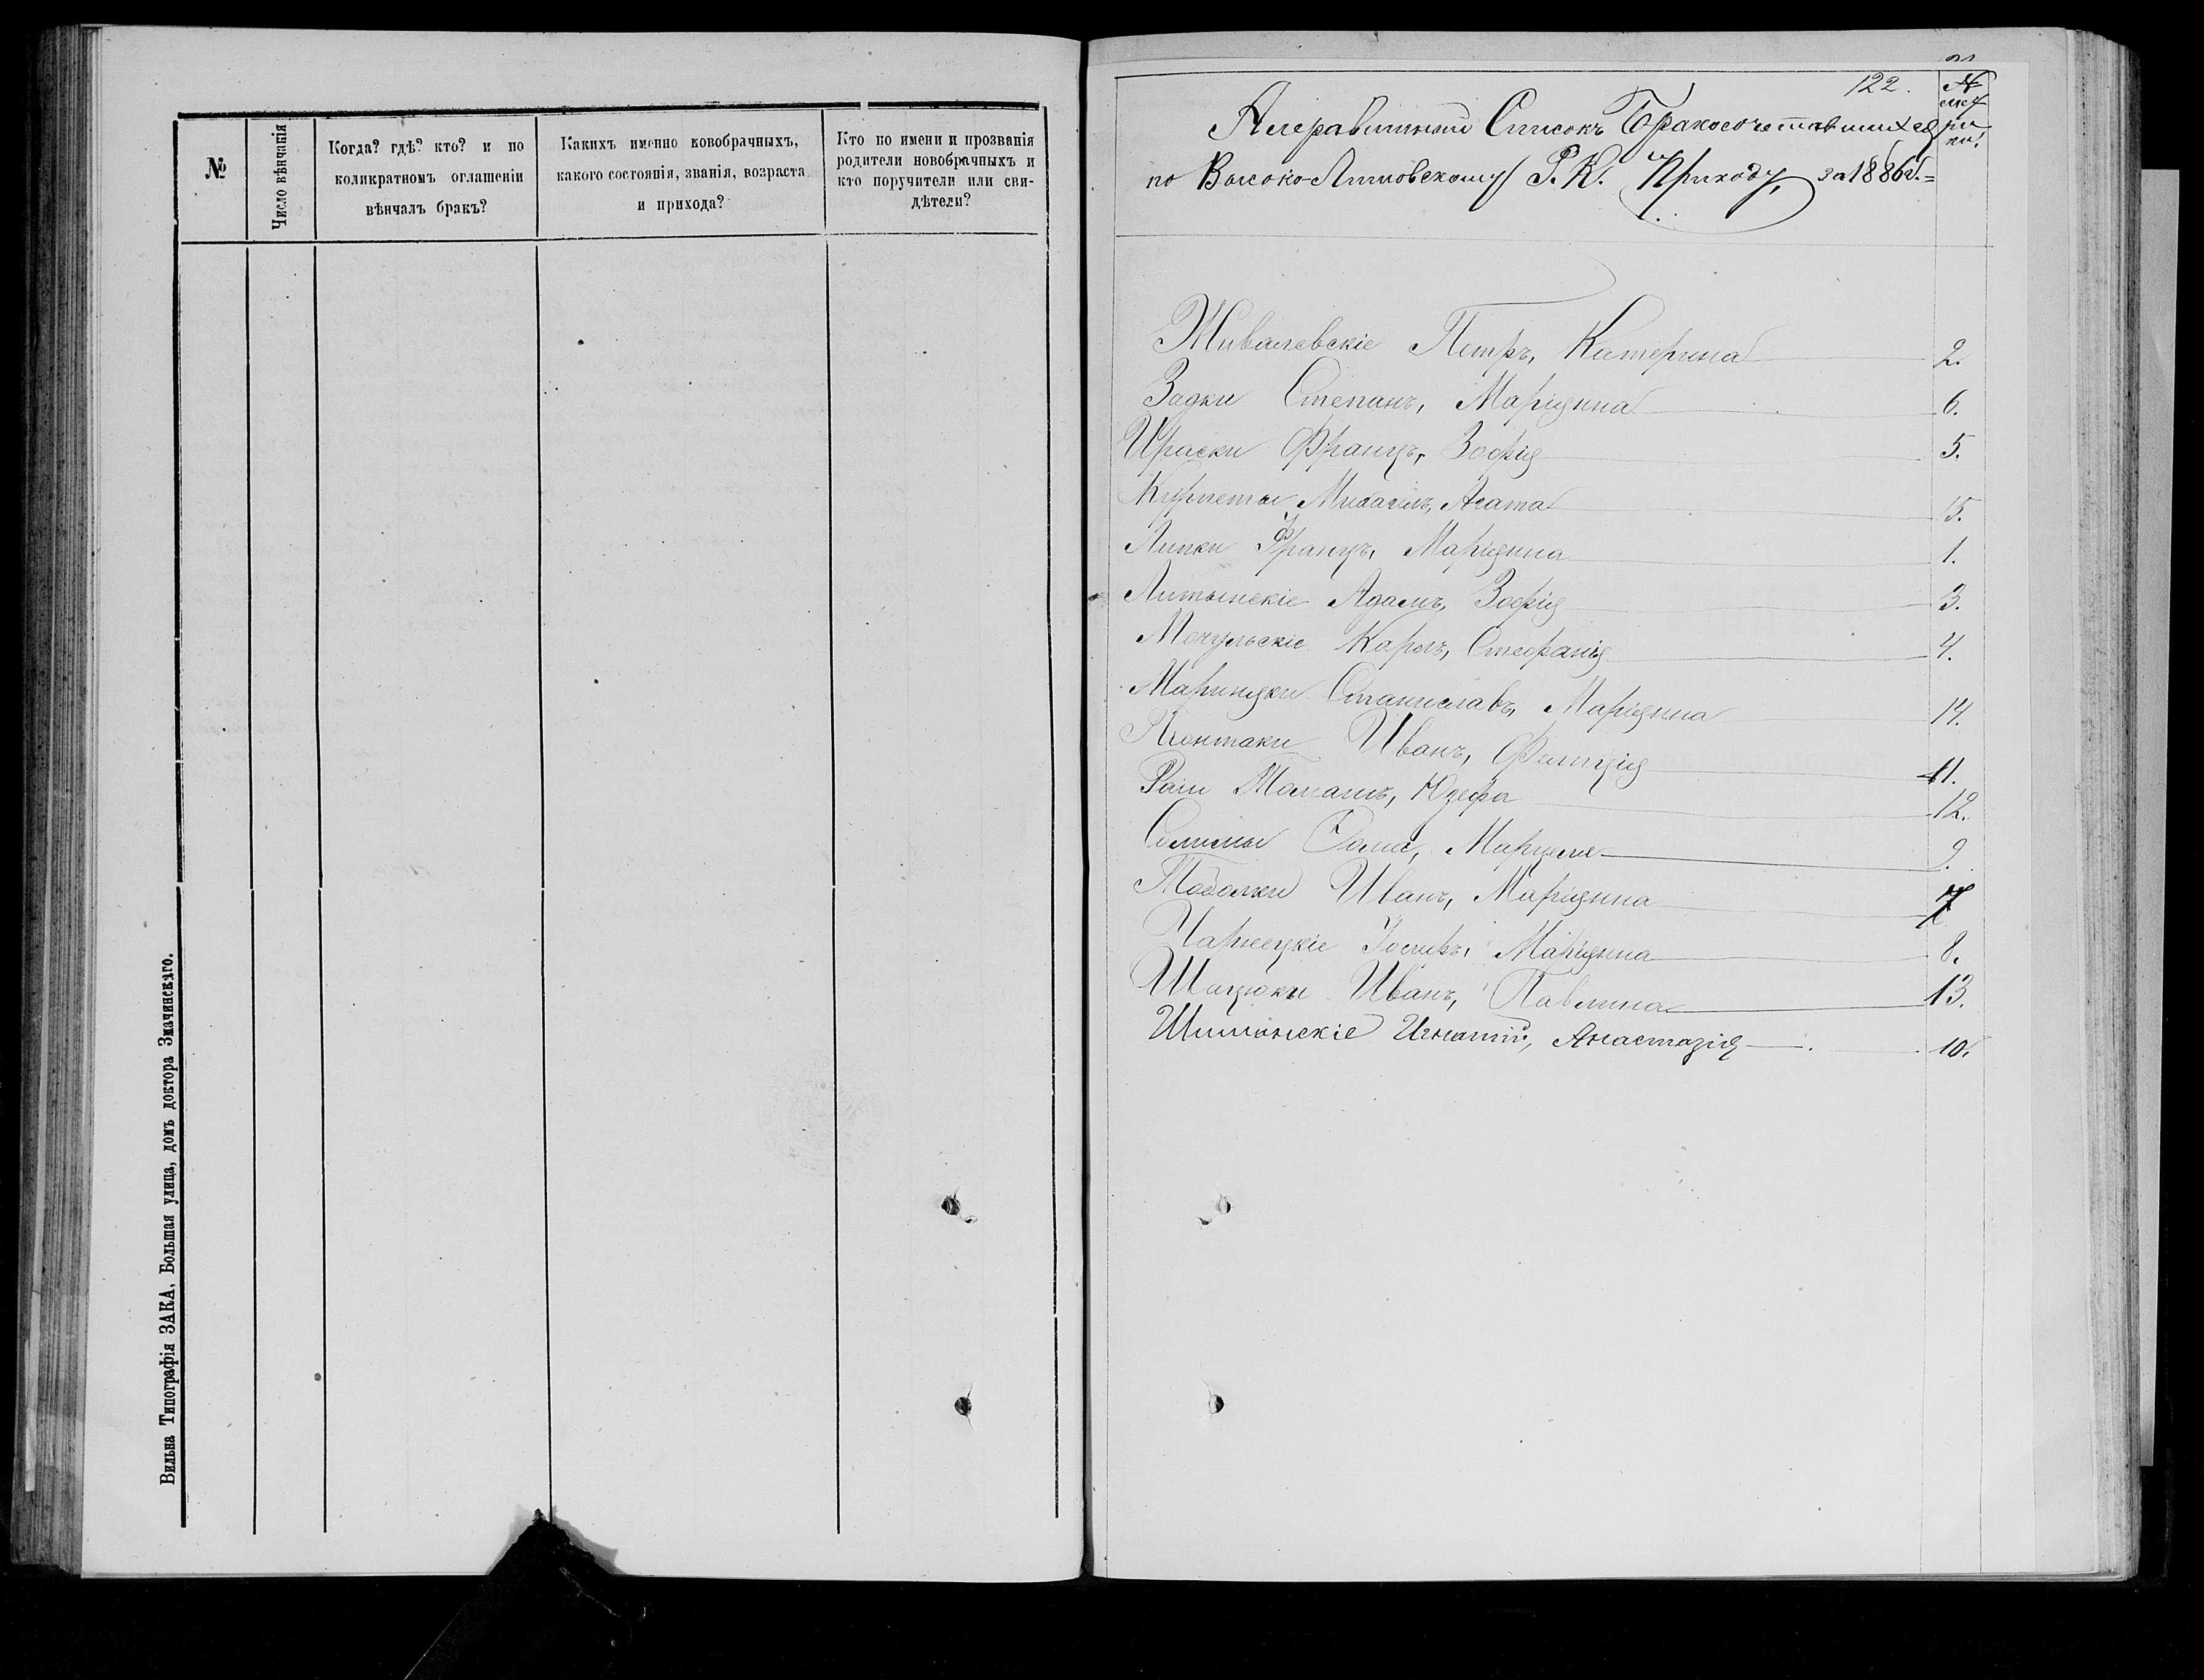 №
Число вѣнчанія
Когда? гдѣ? кто? и по
коликратномъ оглашеніи
вѣнчалъ бракъ?
Какихъ именно новобрачныхъ,
какого состоянія, званія, возраста
и прихода?
Кто по имени и прозванія
родители новобрачныхъ и
кто поручители или сви-
дѣтели?
Вильна Типографія ЗАКА, Большая улица, домъ доктора Значинскаго.
122.
№
мет
ри
ки.
Алфавитный Списокъ Бракосочетавшихся
по Высоко-Литовскому Р. К. Приходу, за 1886 г.
Живалевскіе Петръ, Катерина 2.
Задки Степанъ, Маріянна 6.
Ираски Францъ, Зофія 5.
Курпеты Михаилъ, Агата 15.
Липки Францъ, Маріянна 1.
Литынскіе Адамъ, Зофія 3.
Мокульскіе Карлъ, Стефанія 4.
Станиславъ, Маріянна 14.
Иванъ, Фелиція 11.
Томашъ, Юзефа 12.
Фома, 9.
Иванъ, Маріянна 7
Чарнецкіе Іосифъ, Маріянна 8.
Шацюки Иванъ, Павлина 13.
Шиманскіе Игнатій, Анастазія 10.